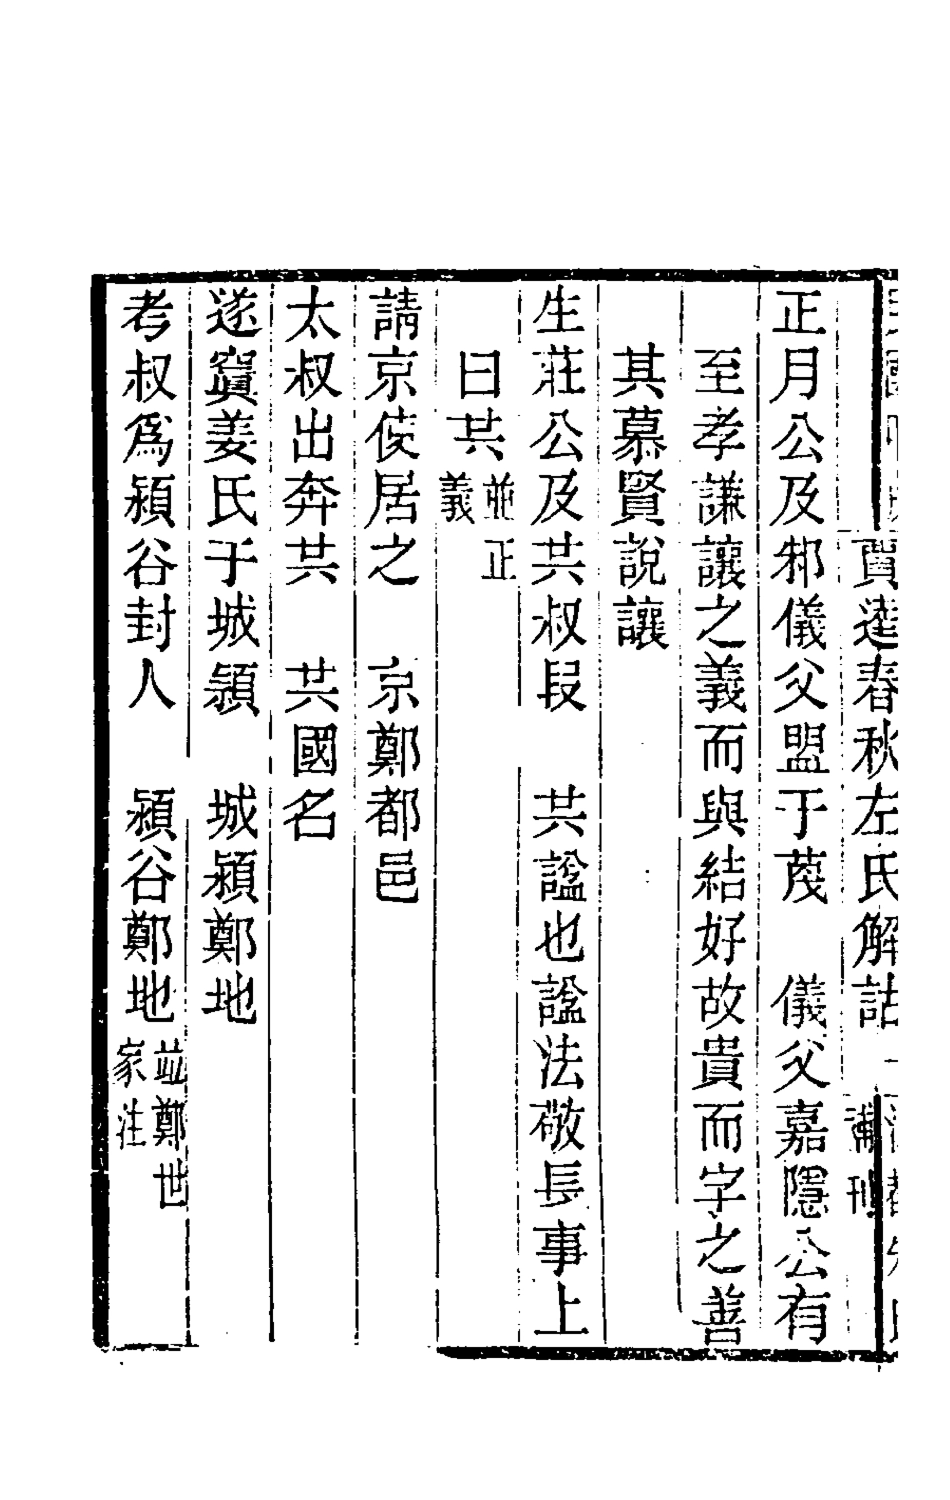 賈逵春秋左氏解詁一 補刊
正月公及邾儀父盟于蔑　儀父嘉隱公有
至孝謙讓之義而與結好故貴而字之善
其慕賢說讓
生莊公及共叔段　共謚也謚法敬長事上
曰共並正義
請京使居之　京鄭都邑
太叔出奔共　共國名
遂寘姜氏于城潁　城潁鄭地
考叔爲潁谷封人　潁谷鄭地竝鄭世家注